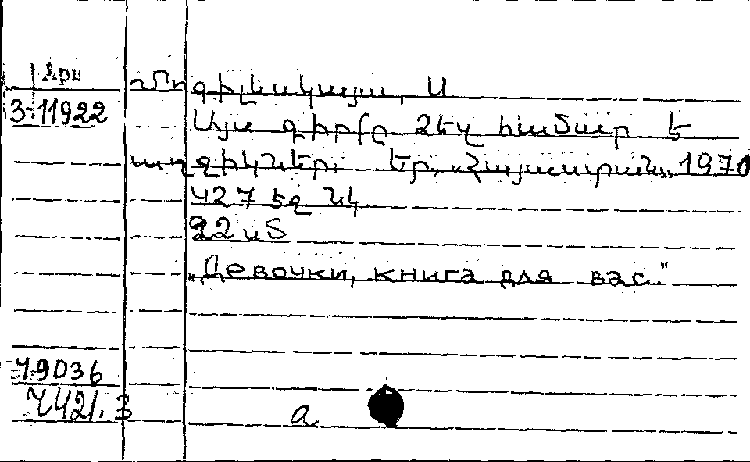 Արմ
3-11922
Մոգիլևսկայա, Ս
Այս գիրքը ձեզ համար է
աղջիկներ։ Եր., «Հայաստան», 1970
427 էջ նկ
22 սմ
„Девочки, книга для вас."
49036
Ч421.3
a